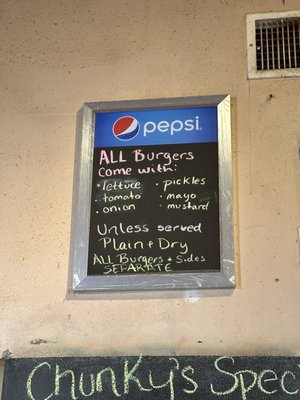 pepsi
ALL Burgers
Come with:
• lettuce • pickles
• tomato • mayo
• onion • mustard
Unless served
Plain + Dry
ALL Burgers + Sides
SEPARATE
Chunky's Spec